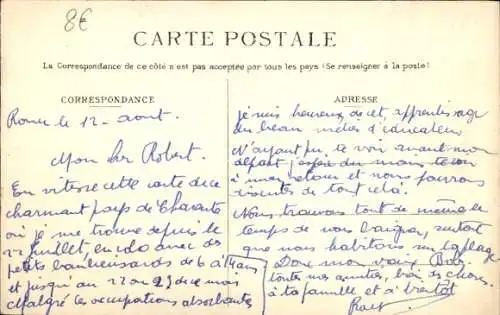 8€
CARTE POSTALE
La Correspondance de ce côté n'est pas acceptée par tous les pays (Se renseigner à la poste)
CORRESPONDANCE
le 12 août.
Mon cher Robert.
En vitesse cette carte de ce
charmant pays de Charente
où je me trouve depuis le
22 juillet, en colo avec des
petits banlieusards de 6 à 14 ans
et jusqu'au 22 ou 23 du mois
Malgré les occupations absorbantes
ADRESSE
je suis heureux de cet apprentissage
du beau métier d'éducateur
N'ayant pu te voir avant mon
départ j'espère du moins te voir
à mon retour et nous pourrons
discuter de tout cela.
Nous trouvons tout de même le
temps de nous baigner, surtout
que nous habitons sur la plage
Donc mon vieux Bob.
toutes mes amitiés, bien des choses
à ta famille et à bientôt